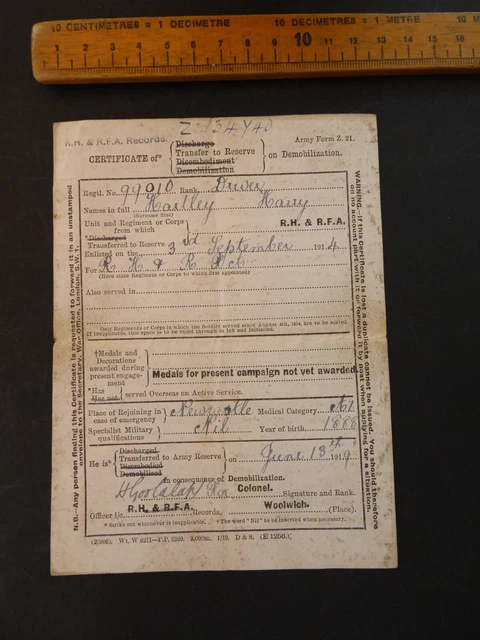 10 CENTIMETRES = 1 DECIMETRE 10 DECIMETRES = 1 METRE 10 M
1 2 3 4 5 6 7 8 9 10 11 12 13 14 15 16
Z 134440
R.H. & R.F.A. Records.
Army Form Z. 21.
CERTIFICATE of*
Discharge
Transfer to Reserve
Disembodiment
Demobilization
on Demobilization.
Regtl. No. 99010 Rank Driver
Names in full Hartley Harry
(Surname first)
Unit and Regiment or Corps from which
R.H. & R.F.A.
*Discharged
Transferred to Reserve
Enlisted on the 3rd September 1914
For R. H. & R.
(Here state Regiment or Corps to which first appointed)
Also served in
Only Regiments or Corps in which the Soldier served since August 4th, 1914, are to be stated.
If inapplicable, this space is to be ruled through in ink and initialled.
†Medals and Decorations awarded during present engagement
Medals for present campaign not yet awarded
*Has
Has not
served Overseas on Active Service.
Place of Rejoining in case of emergency Newcastle Medical Category Nil
Specialist Military qualifications Nil Year of birth 1888
He is*
Discharged
Transferred to Army Reserve
Disembodied
Demobilized
on June 13th 1919
in consequence of Demobilization.
Colonel.
Signature and Rank.
Officer i/c R.H. & R.F.A. Records. Woolwich. (Place).
* Strike out whichever is inapplicable. † The word "Nil" to be inserted when necessary.
D & S. (E 1256.)
N.B.—Any person finding this Certificate is requested to forward it in an unstamped envelope to the Secretary, War Office, London, S.W. 1.
WARNING.—If this Certificate is lost a duplicate cannot be issued. You should therefore on no account part with it or forward it by post when applying for a situation.